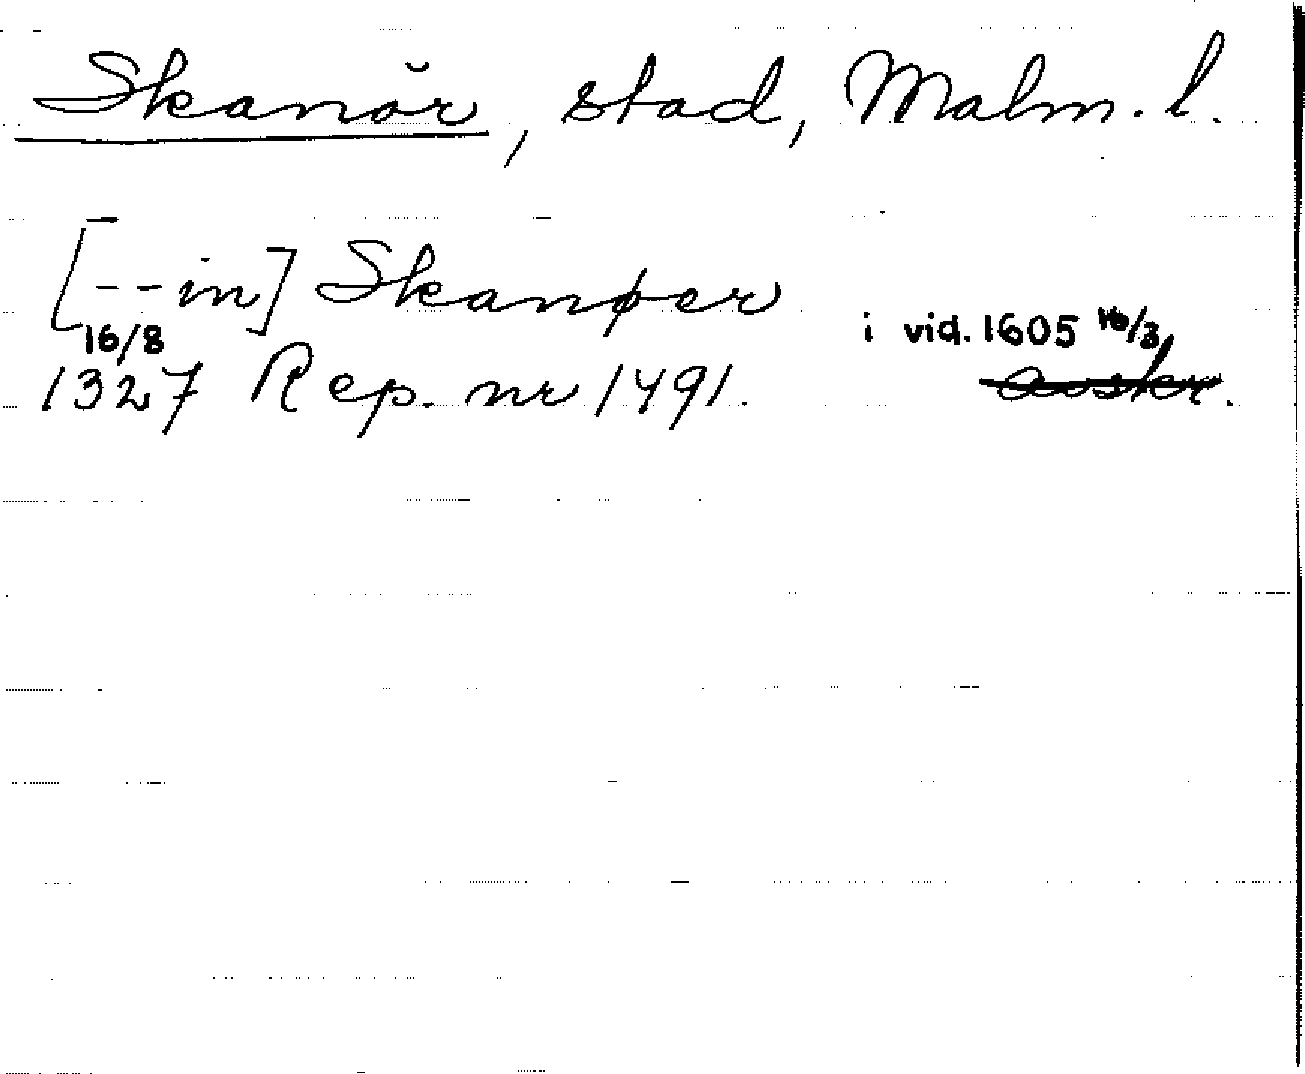 Skanör, stad, Malm. l.
[-- in] Skanøer
16/8 i vid. 1605 16/3
1327 Rep. nr 1491. avskr.